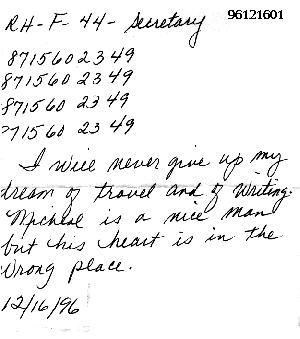 96121601
RH-F-44-Secretary
8715602349
8715602349
8715602349
8715602349
I will never give up my
dream of travel and of writing.
Micheal is a nice man
but his heart is in the
Wrong place.
12/16/96